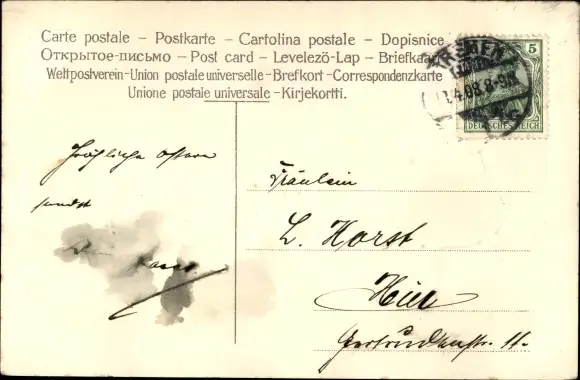 Carte postale – Postkarte – Cartolina postale – Dopisnice
Открытое-письмо – Post card – Levelezö-Lap – Briefka
Weltpostverein-Union postale universelle-Brefkort-Correspondenzkarte
Unione postale universale-Kirjekortti.
BREMEN
.4.08.8-9N.
5
DEUTSCHES REICH
Fröhliche Ostern
sendet
Fräulein
L. Horst
Hier
Gertrudenstr. 11.